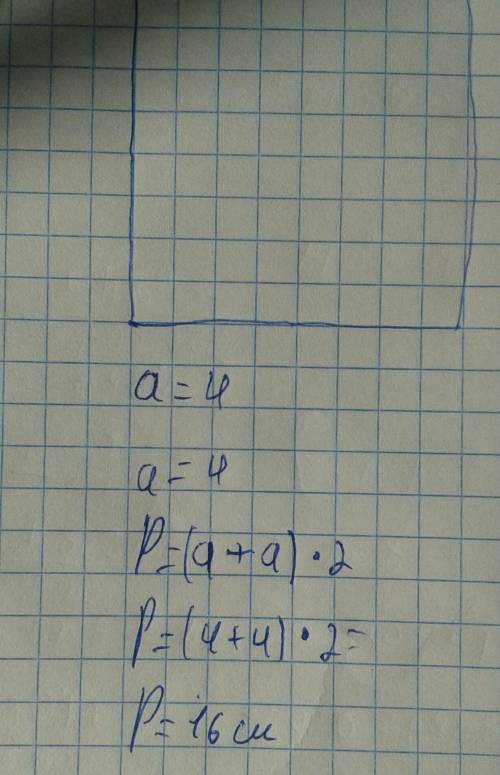 a = 4
a = 4
P = (a + a) · 2
P = (4 + 4) · 2 =
P = 16 см